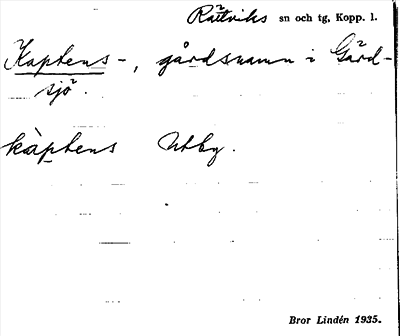 Rättviks sn och tg, Kopp. l.
Kaptens-, gårdsnamn i Gärd-
sjö.
kàptens Utby.
Bror Lindén 1935.